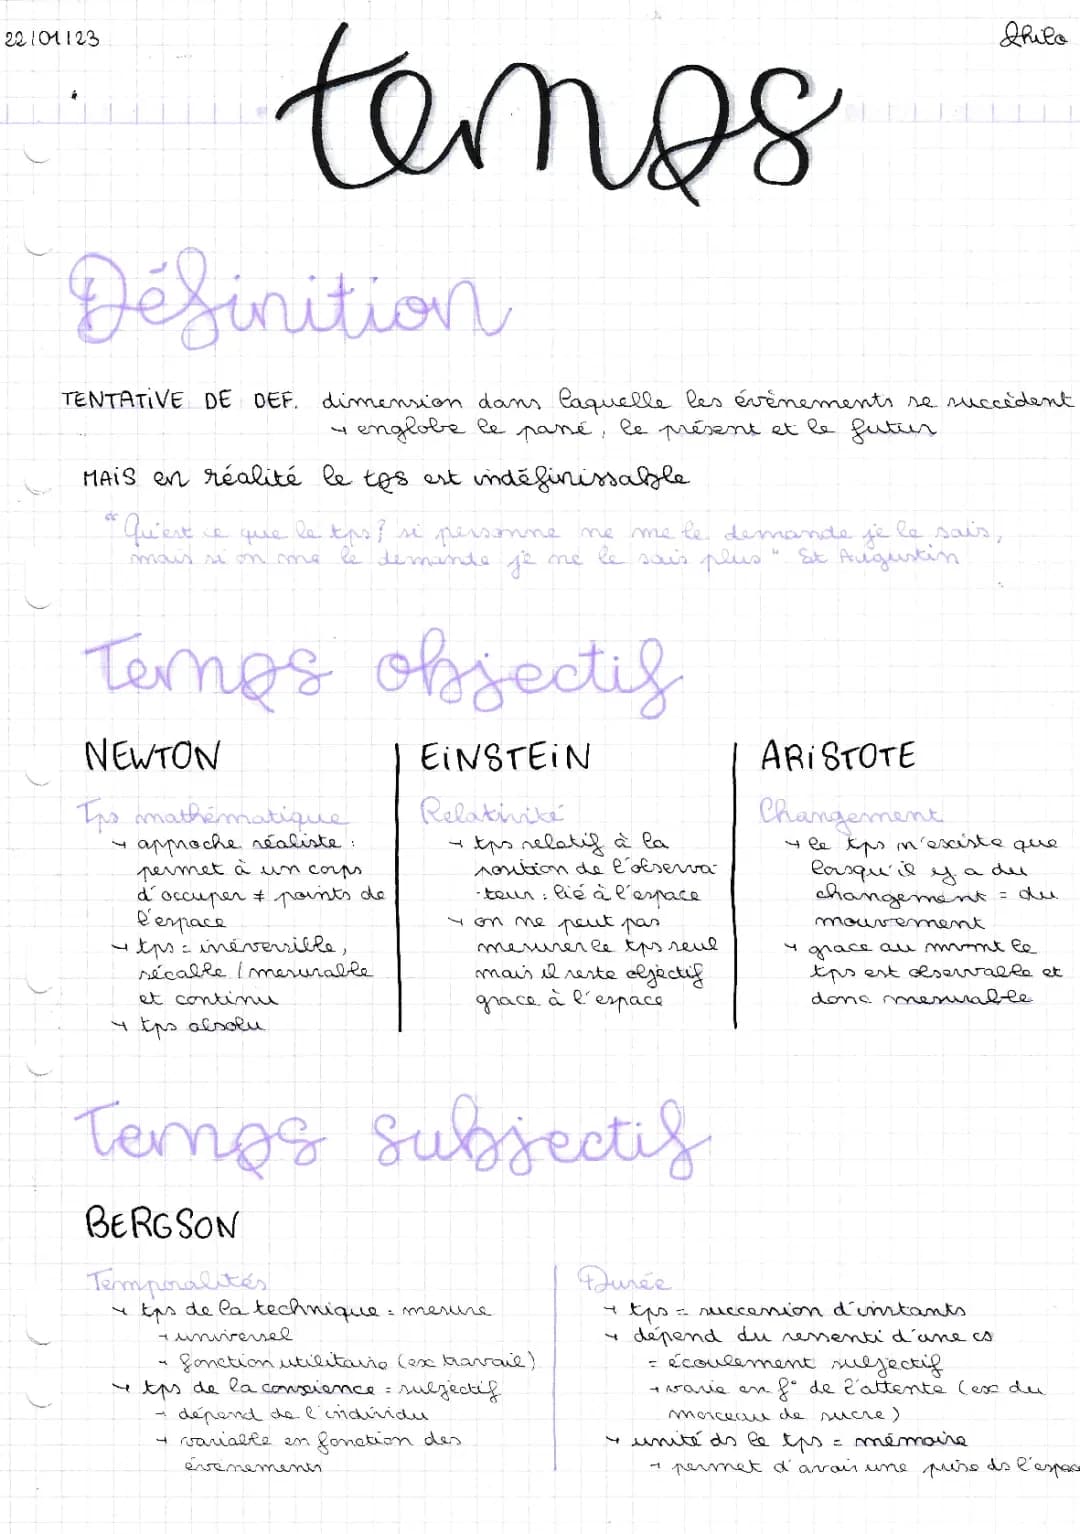 22/01/23
Philo
temps
Définition
TENTATIVE DE DEF. dimension dans laquelle les évènements se succèdent
→ englobe le passé, le présent et le futur
MAIS en réalité le tps est indéfinissable
"Qu'est ce que le tps? si personne ne me le demande je le sais,
mais si on me le demande je ne le sais plus" St Augustin
Temps objectif
NEWTON
Tps mathématique
→ approche réaliste :
permet à un corps
d'occuper ≠ points de
l'espace
→ tps = irréversible,
sécable / mesurable
et continu
→ tps absolu
EINSTEIN
Relativité
→ tps relatif à la
position de l'observa-
-teur : lié à l'espace
→ on ne peut pas
mesurer le tps seul
mais il reste objectif
grace à l'espace
ARISTOTE
Changement
→ le tps n'existe que
lorsqu'il y a du
changement = du
mouvement
→ grace au mvmt le
tps est observable et
donc mesurable
Temps subjectif
BERGSON
Temporalités
→ tps de la technique = mesure
→ universel
→ fonction utilitaire (ex travail)
→ tps de la conscience = subjectif
→ dépend de l'individu
→ variable en fonction des
évènements
Durée
→ tps = succession d'instants
→ dépend du ressenti d'une cs
= écoulement subjectif
→ varie en f° de l'attente (ex du
morceau de sucre)
→ unité ds le tps = mémoire
→ permet d'avoir une prise ds l'espace